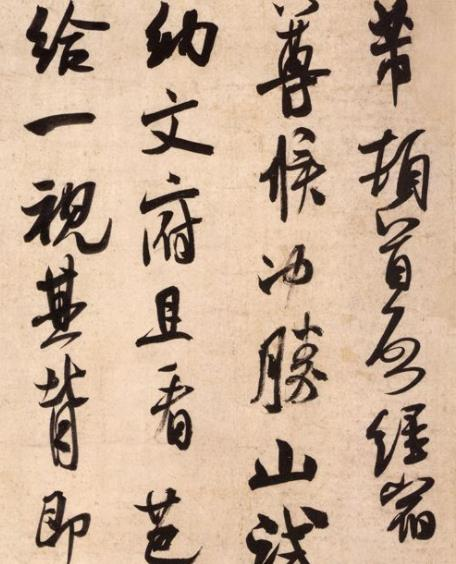 芾頓首啟經宿
尊候冲勝山試
納文府且看芭
給一視其背即